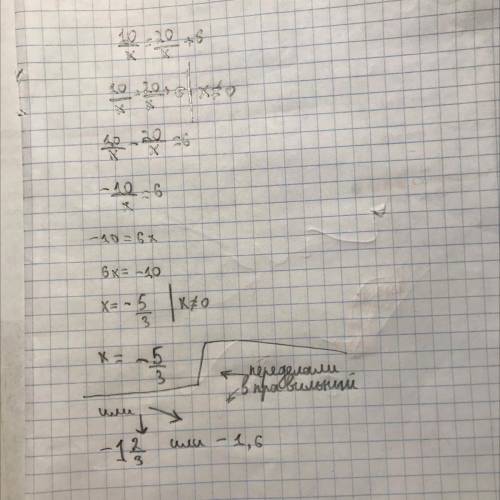 10/x = 20/x + 6
10/x = 20/x + 6 | x ≠ 0
10/x - 20/x = 6
-10/x = 6
-10 = 6x
6x = -10
x = -5/3 | x ≠ 0
x = -5/3
← переделали
в правильный
или
-1 2/3 или - 1,6